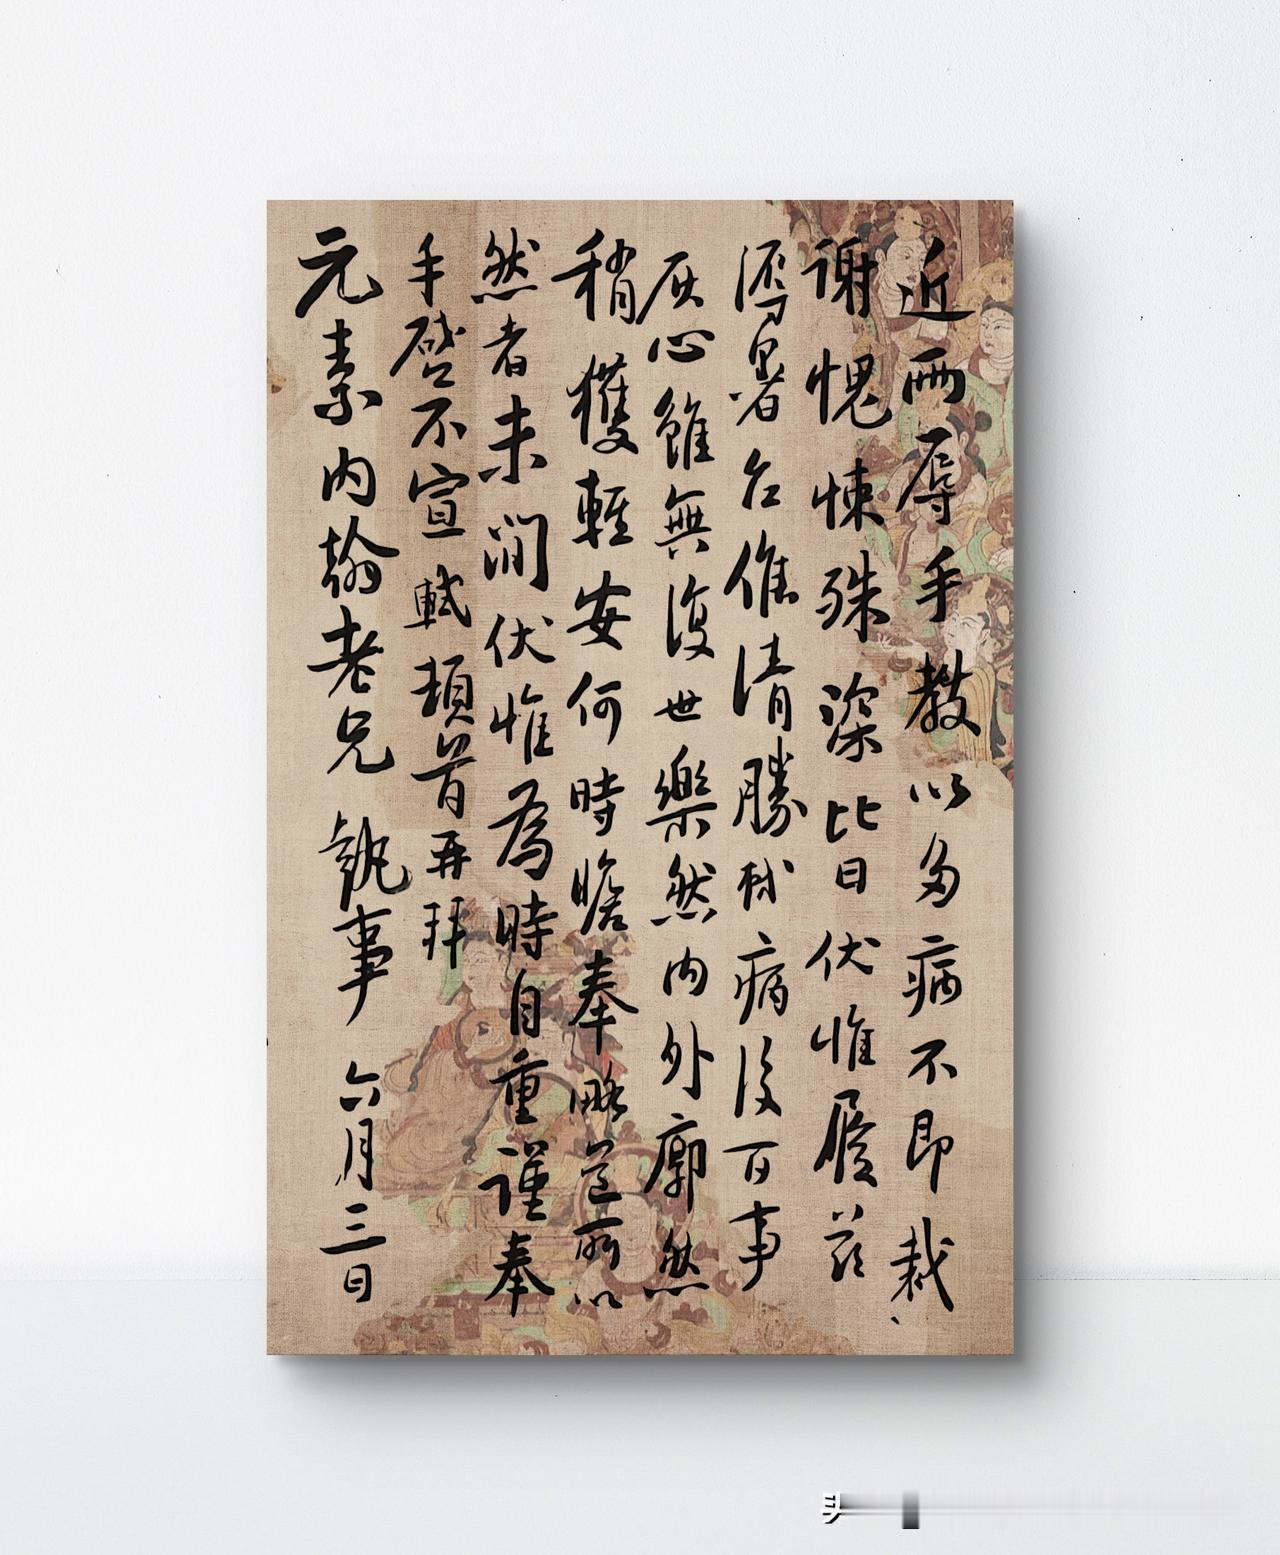 近兩辱手教以多病不即裁
謝愧悚殊深比日伏惟履茲
溽暑台候清勝軾病後百事
灰心雖無復世樂然內外廓然
稍獲輕安何時瞻奉略道所以
然者未間伏惟為時自重謹奉
手啓不宣軾頓首再拜
元素內翰老兄執事六月三日
头